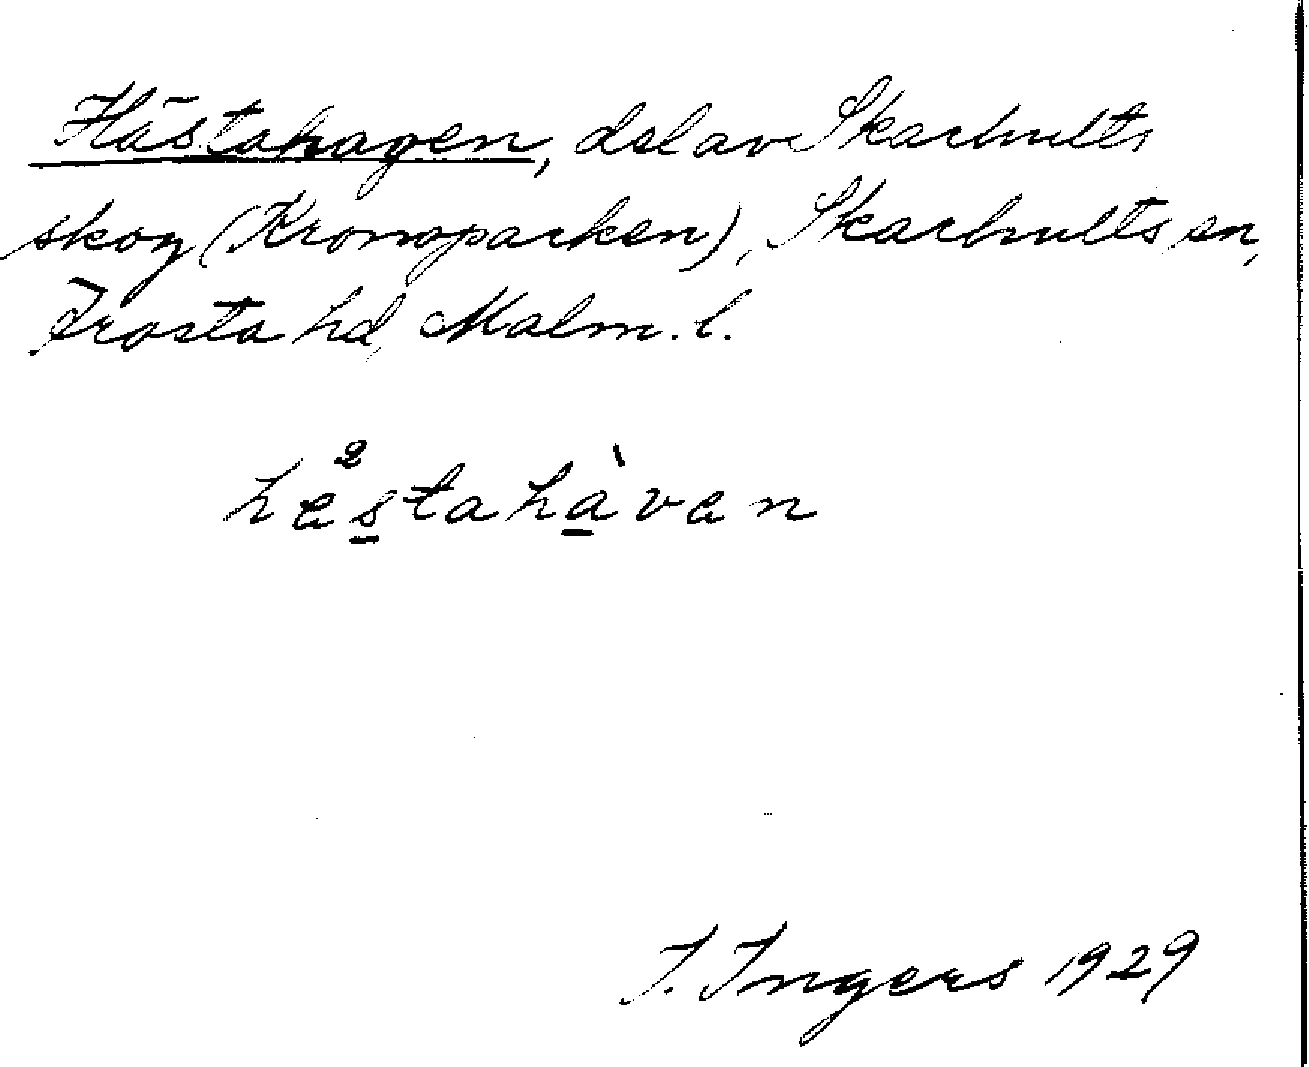 Hästahagen, del av Skarhults
skog (Kronoparken), Skarhults sn,
Frosta hd, Malm. l.
he²s̲tahà̲van
I. Ingers 1929